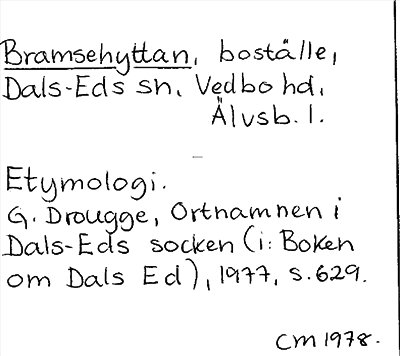 Bramsehyttan, boställe,
Dals-Eds sn, Vedbo hd,
Älvsb. l.
Etymologi.
G. Drougge, Ortnamnen i
Dals-Eds socken (i: Boken
om Dals Ed), 1977, s. 629.
CM 1978.